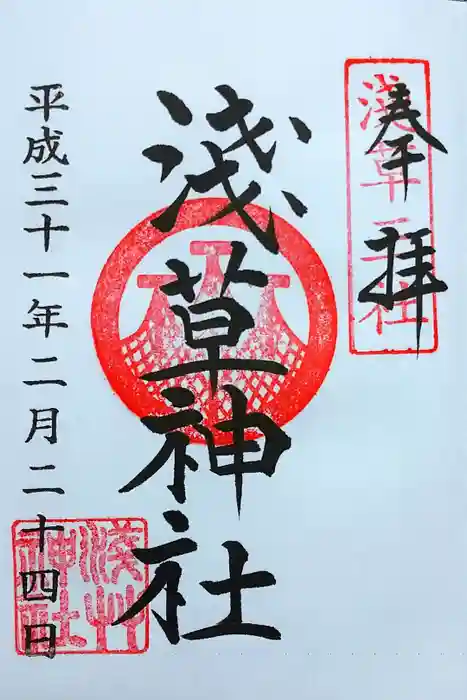 奉拝
淺草三社
淺草神社
淺草神社
平成三十一年二月二十四日